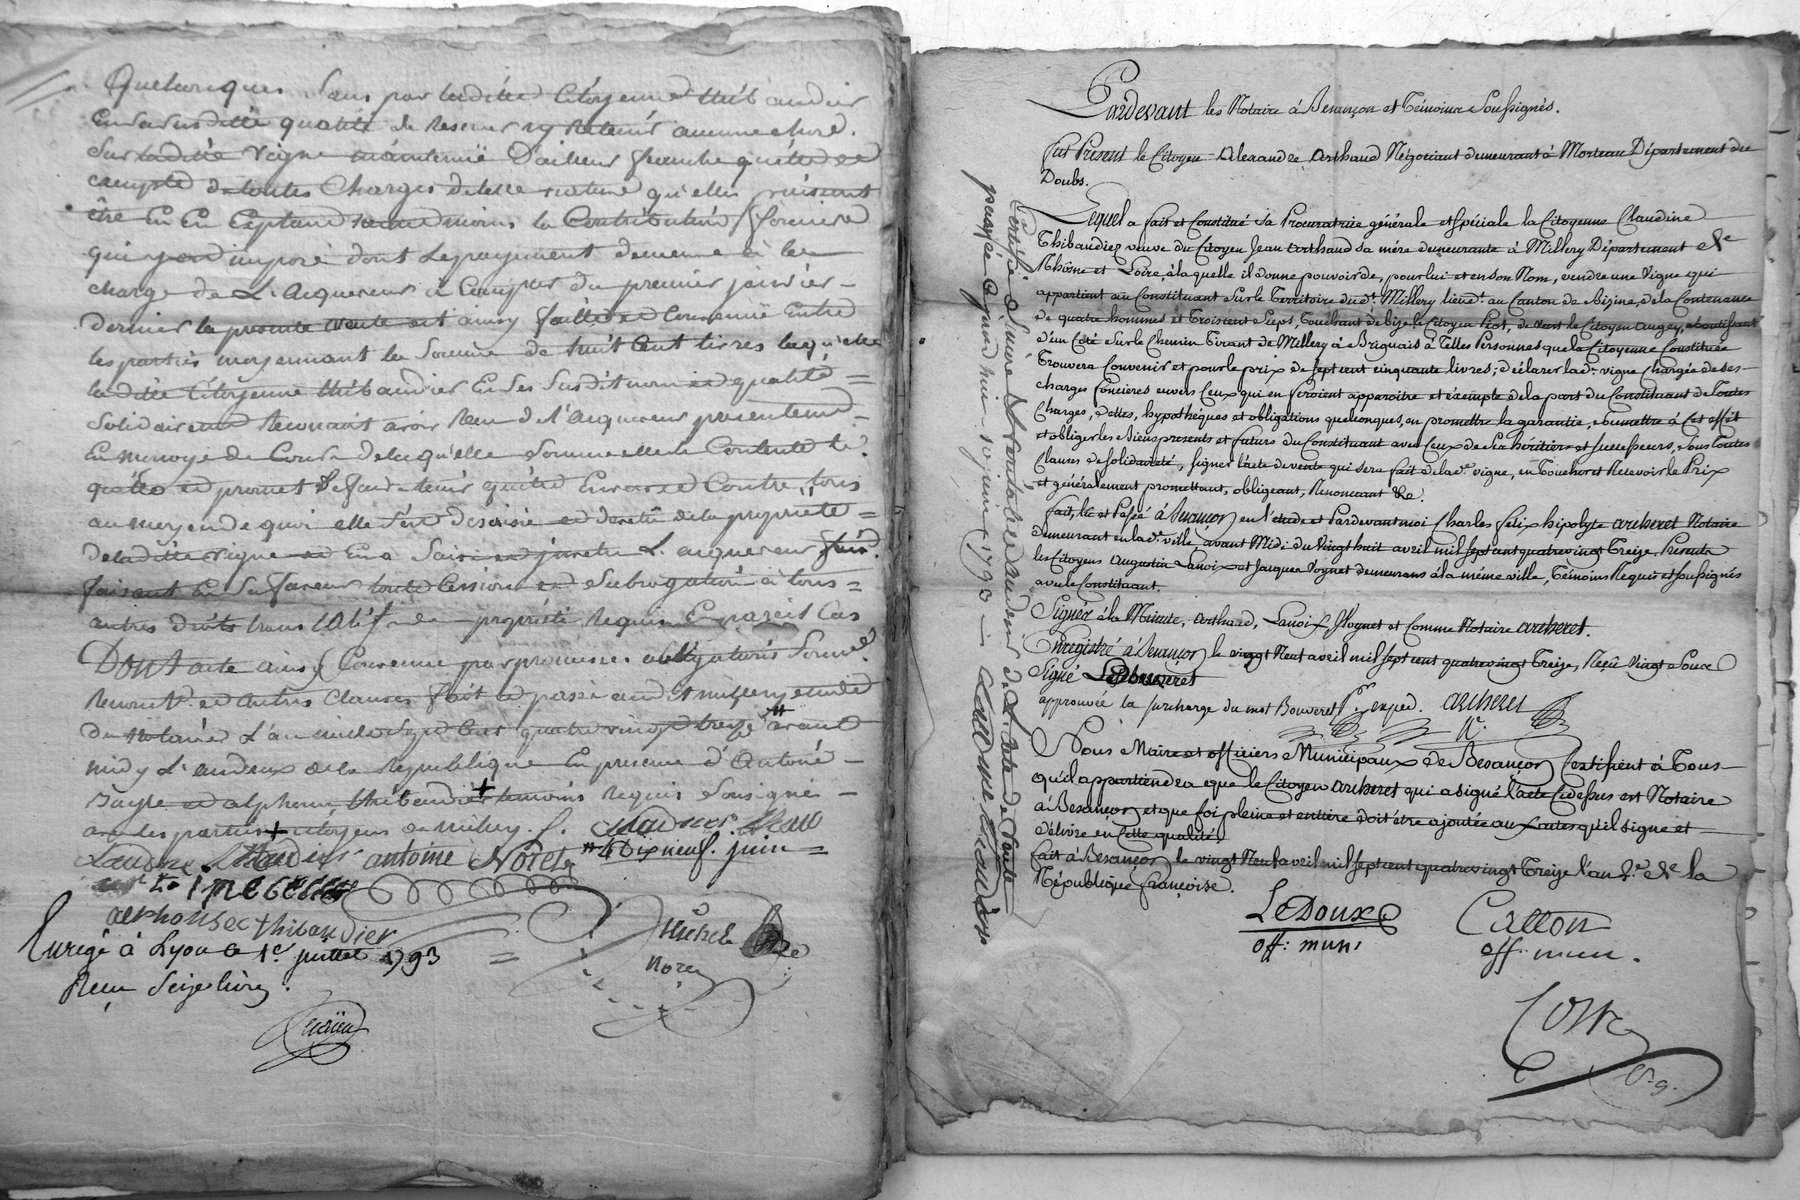 Quelconques Sans par laditte Citoyenne thibaudier
En sa susditte qualité de Reserver ny Retenir aucune chose
Sur laditte vigne maintenüe D'ailleur franche quitte et
exempte de toutes Charges de telle nature qu'elles puissent
être En En Exceptant neanmoins la Contribution fonciere
qui y est imposé dont le payement demeure à la
charge de L'aiquereur a Compter du premier janvier
dernier la presente vente est ainsy faitte et Convenüe Entre
les parties moyennant la Somme de huit Cent livres laquelle
laditte Citoyenne thibaudier En ses susdit nom et qualité
Solidairement Reconnait avoir Reçu de L'aiquereur presentement
En monoye de Cours de laquelle Somme elle le Contente le
quitte et promet le faire tenir quitte Envers et Contre tous
au moyen de quoi elle s'est desaisie et devetüe de la propriété
de laditte vigne et En a Saisi et jnvetu L'aiquereur
faisant En Sa faveur toute Cession et Subrogation à tous
autres droits translatif de propriété Requis En pareil Cas
Dont acte ainsy Convenue par promesses obligations Soumis.
Renont.^s et autres Clauses fait et passé audit millery etude
du Notaire L'an mille Sept Cent quatre vingt treize # avant
midy L'an deux de la Republique En presence d'Antoine
Bayle et alphonse thibaudier + temoins Requis Sousignés
avec les parties + citoyens de millery
Claudine thibaudier antoine Noret # le Dix neuf juin
alphonse thibaudier
Enregé à Lyon le 1er juillet 1793 michel
Reçu Seize livres. Noret
Pardevant les Notaire à Besançon et Témoins Soussignés.
Fut Present le Citoyen Alexandre Arthaud Négociant demeurant à Morteau Département du
Doubs.
Lequel a fait et Constitué sa Procuratrice générale et spéciale la Citoyenne Claudine
Thibaudier veuve du Citoyen Jean Arthaud sa mère demeurante à Millery Département de
Rhône et Loire, à laquelle il donne pouvoir de, pour lui et en son Nom, vendre une Vigne qui
appartient au Constituant Sur le Territoire dud.t Millery lieud.t au Canton de Bizine, de la Contenance
de quatre hommes et Troisient Pieps, Touchant de bize le Citoyen Piot, de vent le Citoyen Augey, aboutissant
d'un Coté Sur le Chemin Tirant de Millery à Brignais à Telles Personnes que la Citoyenne Constituée
Trouvera Convenir et pour le prix de sept cent cinquante livres; déclarer lad.e vigne Chargée de ses
charges foncieres envers Ceux qui en feroient apparoitre et exempte de la part du Constituant de toutes
Charges, dettes, hypothèques et obligations quelconques, en promettre la garantie, soumettre à Cet effet
et obliger les Biens presents et futurs du Constituant avec Ceux de ses héritiers et successeurs, Sous toutes
Clauses de solidarieté, signer l'acte de vente qui sera fait de lad.e vigne, en Toucher et Recevoir le Prix
et généralement promettant, obligeant, Renonçant &c.
Fait, lû et Passé à Besançon en l'étude et Pardevant moi Charles Félix hipolyte archeret Notaire
demeurant en lad.e ville avant Midi du vingt huit avril mil sept cent quatrevingt Treize, Presents
les Citoyens Augustin Lanoix et Jacques Vognet demeurans à la même ville, Témoins Requis et Soussignés
avec le Constituant.
Signés à la Minute, Arthaud, Lanoix, Vognet et Comme Notaire archeret.
Enregistré à Besançon le vingt Neuf avril mil sept cent quatrevingt Treize, Reçû Vingt Sous
Signé Bouveret
approuvée la surcharge du mot Bouveret p.r exped. archeret
N.re
Nous Maire et officiers Municipaux de Besançon Certifient à Tous
qu'il appartiendra que le Citoyen archeret qui a signé l'acte Cidessus est Notaire
à Besançon et que foi pleine et entière doit être ajoutée aux actes qu'il signe et
délivre en Cette qualité.
Fait à Besançon le vingt Neuf avril mil sept cent quatrevingt Treize l'an 2.e de la
République françoise.
LeDoux Catton
off: mun: off: mun.
passée aujourd'hui 19 juin 1793 Claudine thibaudier